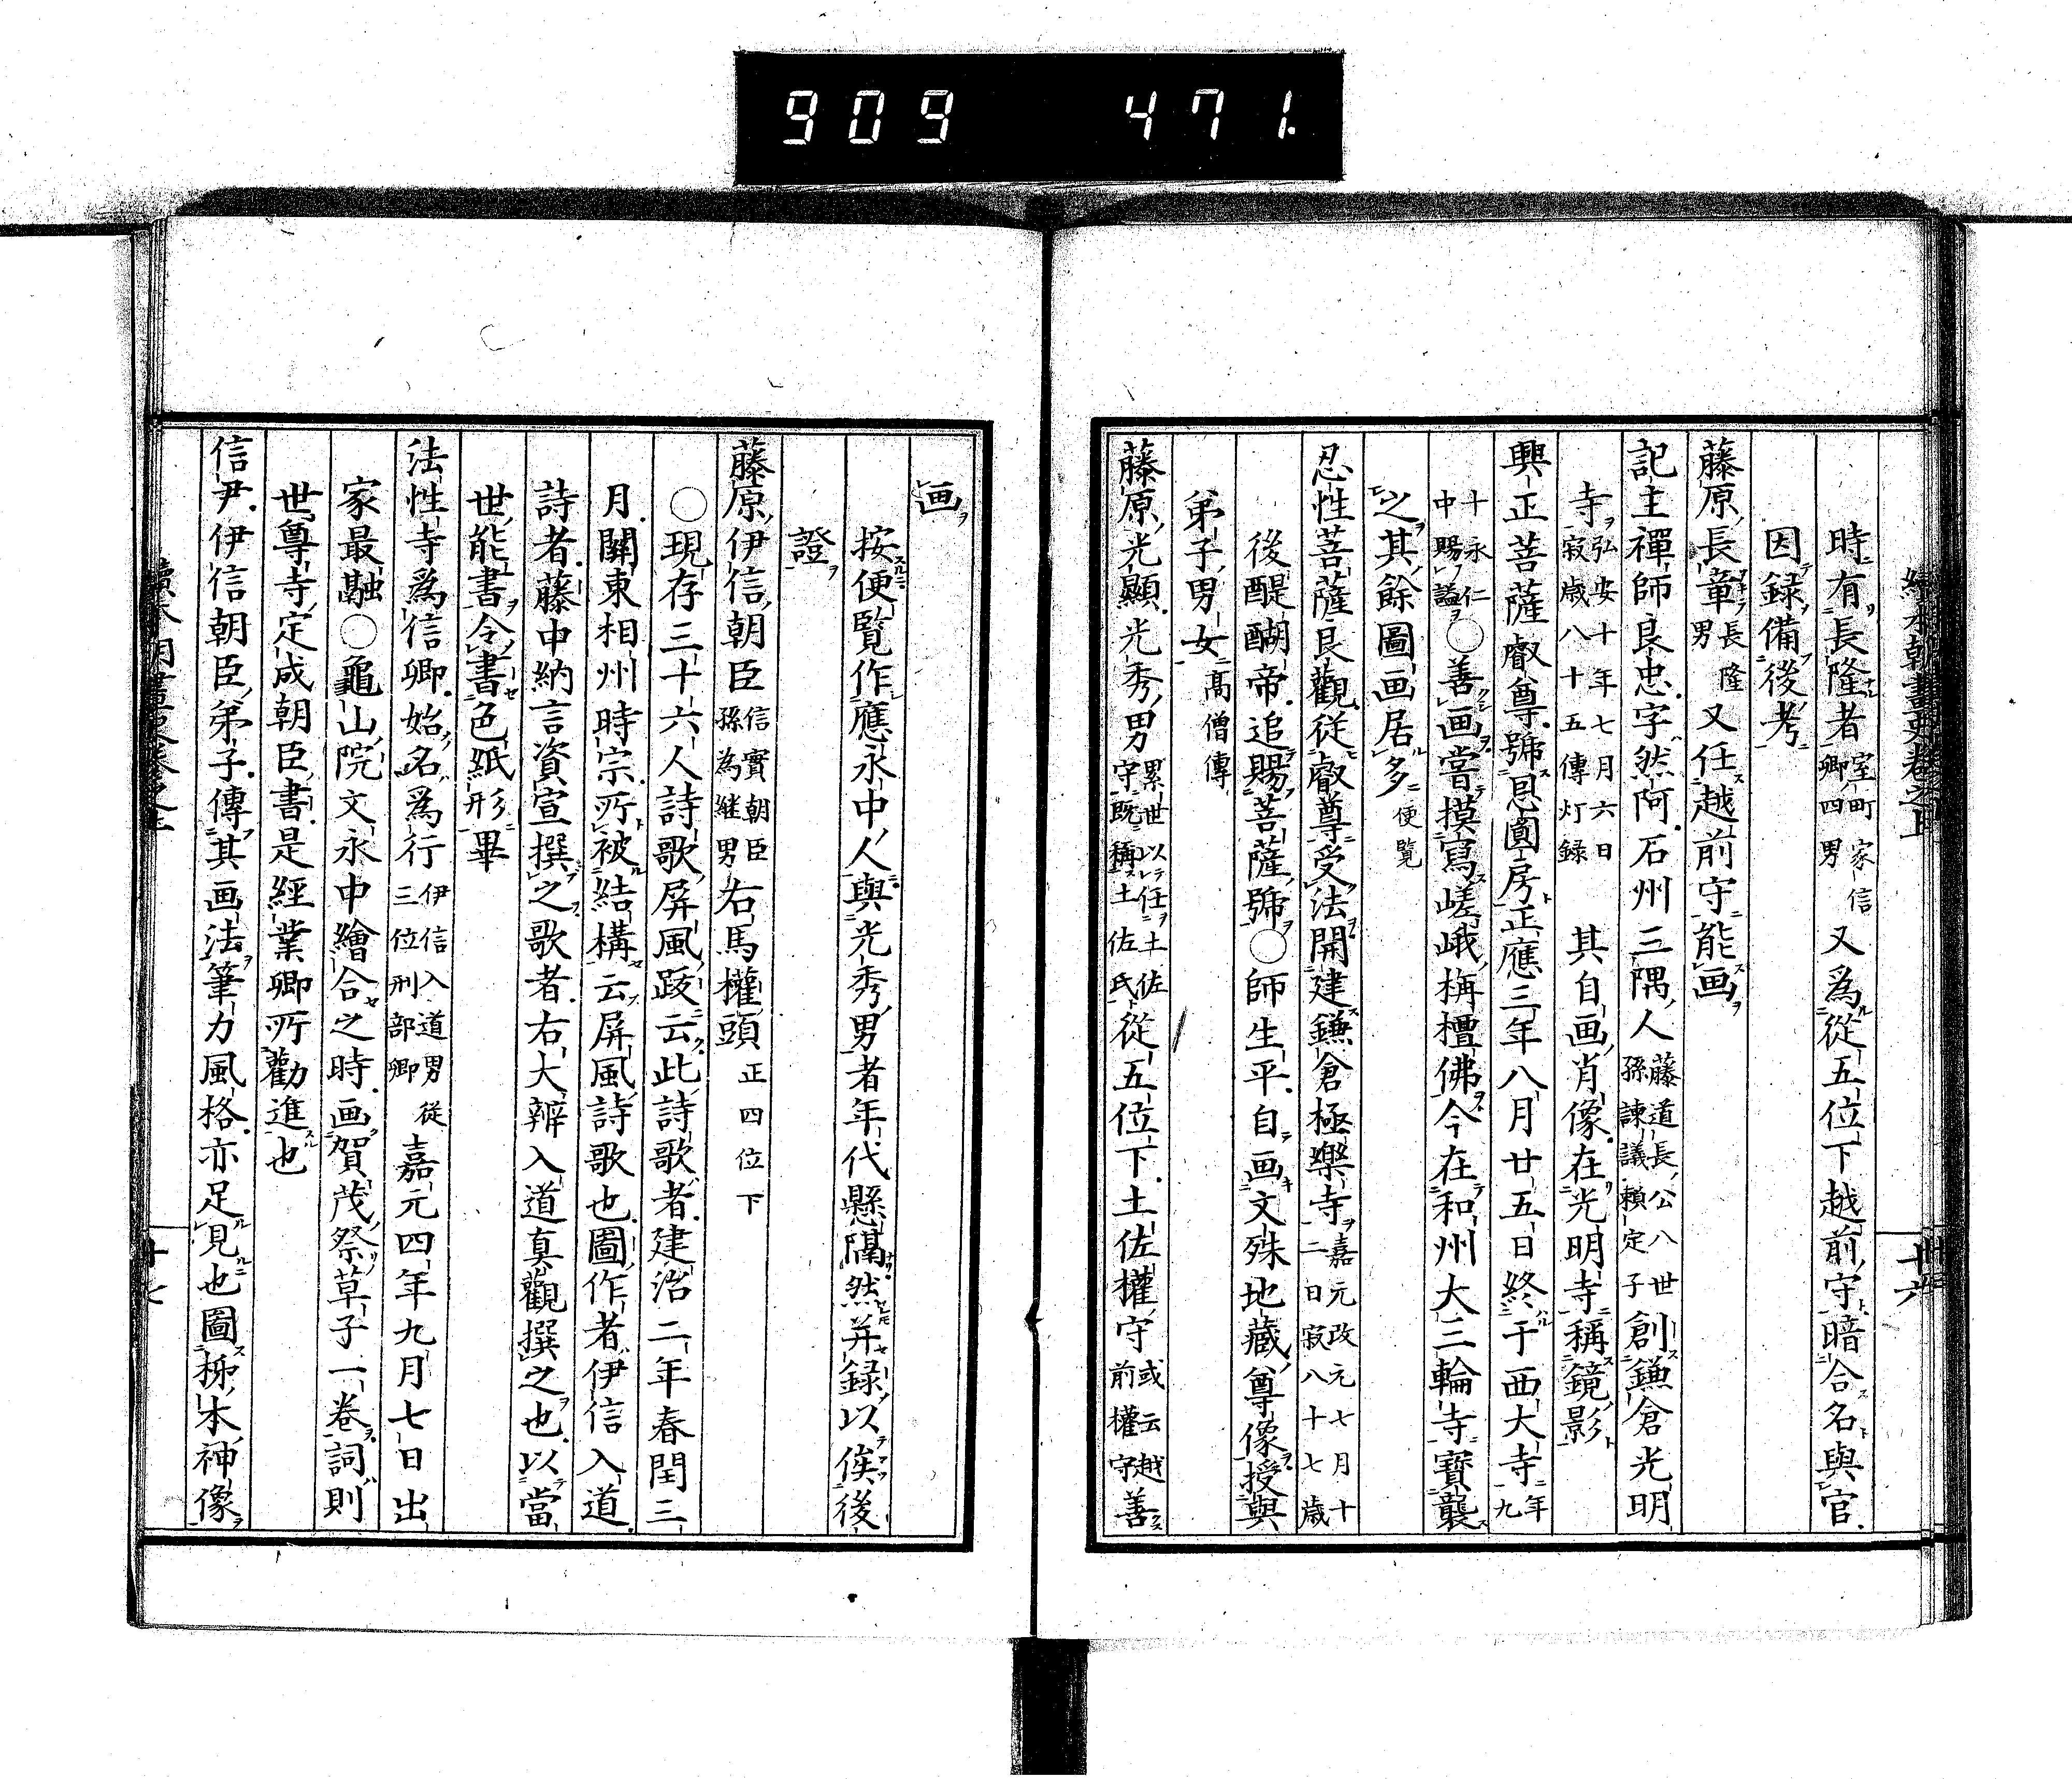 909 471.
續本朝畫史卷之上 十六
時有長隆者室町家信卿四男又爲從五位下越前守暗合名與官
因録備後考
藤原長章長隆男又任越前守能画
記主禪師良忠字然阿石州三隅人藤道長公八世孫諫議賴定子創鎌倉光明
寺弘安十年七月六日寂歳八十五傳灯録其自画肖像在光明寺稱鏡影
興正菩薩叡尊號思圓房正應三年八月廿五日終于西大寺年九
十永仁中賜謚○善画嘗摸寫嵯峨栴檀佛今在和州大三輪寺寶襲
之其餘圖画居多便覧
忍性菩薩良觀從叡尊受法開建鎌倉極樂寺嘉元改元七月十二日寂八十七歳
後醍醐帝追賜菩薩號○師生平自画文殊地藏尊像授與
弟子男女高僧傳
藤原光顯光秀男累世以任土佐守既稱土佐氏從五位下土佐權守或云越前權守善
画
按便覧作應永中人與光秀男者年代懸隔然并録以俟後
證
藤原伊信朝臣信實朝臣孫為継男右馬權頭正四位下
○現存三十六人詩歌屏風跋云此詩歌者建治二年春閏三
月關東相州時宗所被結構云屏風詩歌也圖作者伊信入道
詩者藤中納言資宣撰之歌者右大辨入道真觀撰之也以當
世能書令書色紙形畢
法性寺爲信卿始名爲行伊信入道男從三位刑部卿嘉元四年九月七日出
家最融○龜山院文永中繪合之時画賀茂祭草子一卷詞則
世尊寺定成朝臣書是經業卿所勸進也
信尹伊信朝臣弟子傳其画法筆力風格亦足見也圖柹本神像